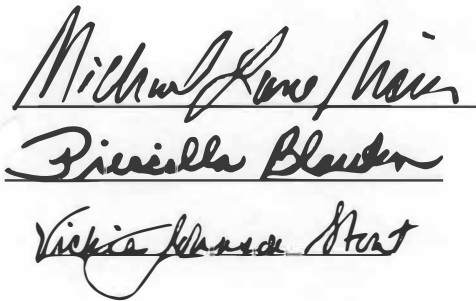 Michael Lane
Priscilla Blanton
Vickie Johnson Stout